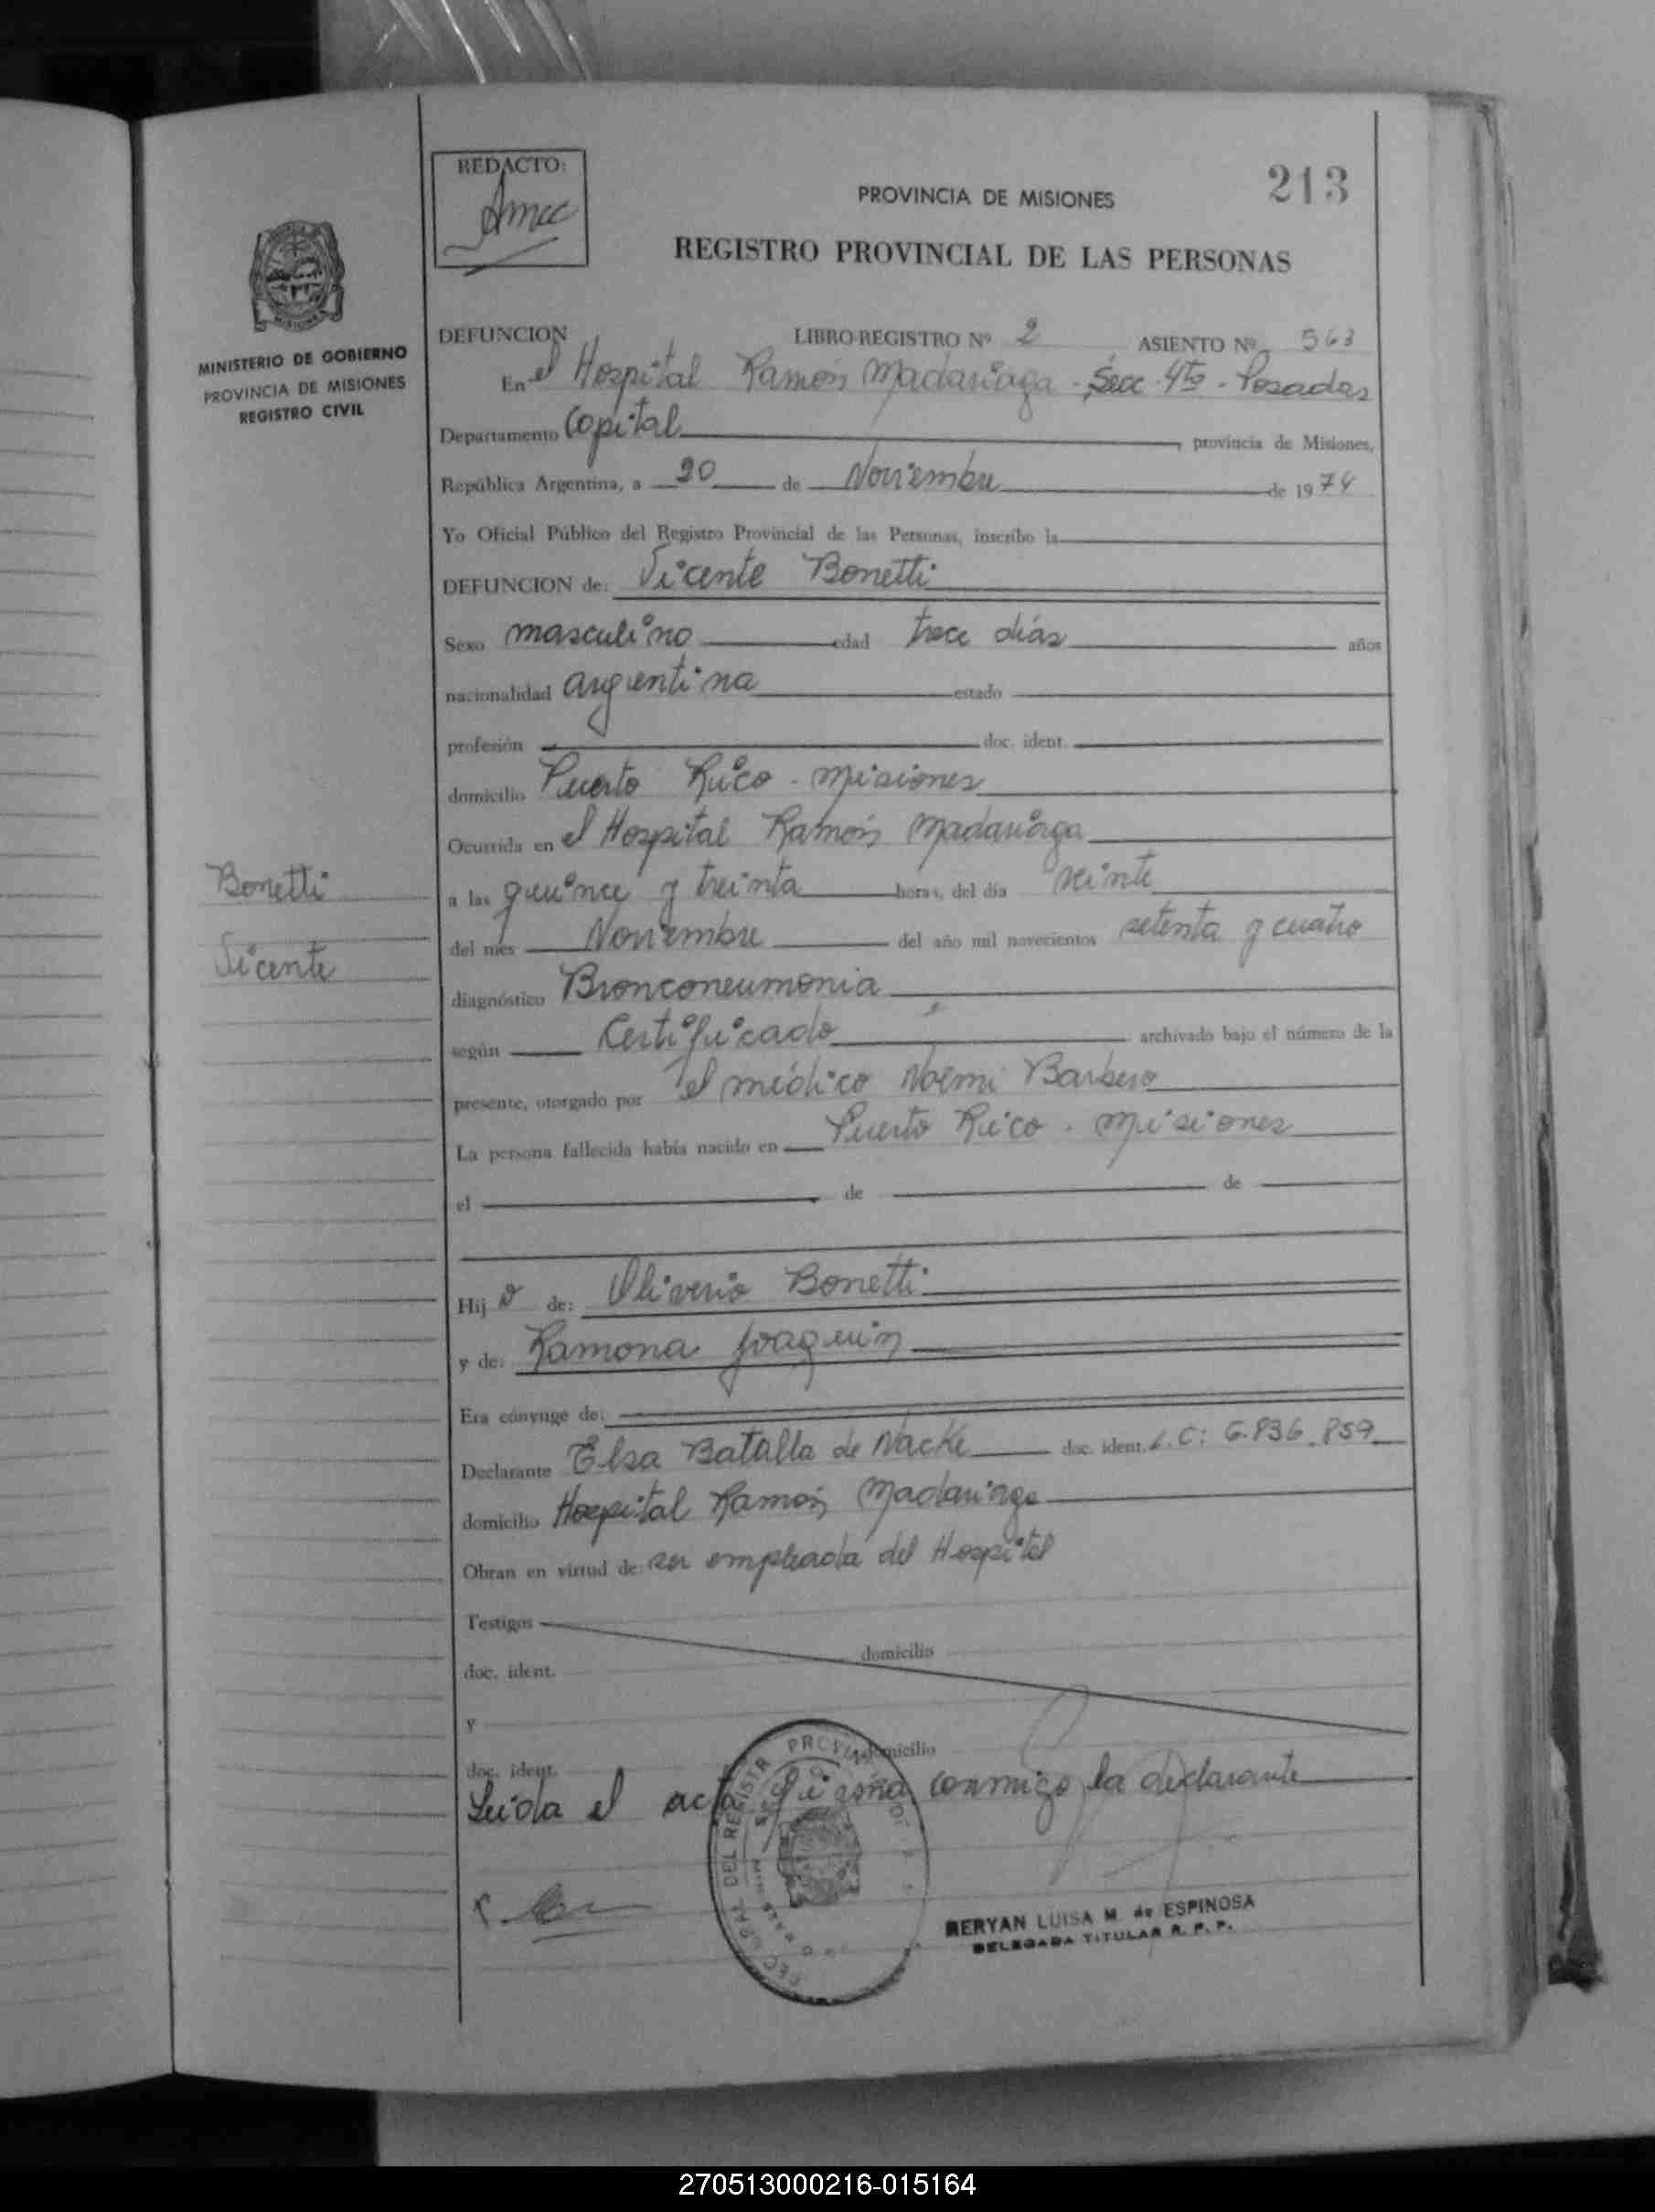 REDACTO:
213
PROVINCIA DE MISIONES
REGISTRO PROVINCIAL DE LAS PERSONAS
MINISTERIO DE GOBIERNO
PROVINCIA DE MISIONES
REGISTRO CIVIL
DEFUNCION LIBRO REGISTRO Nº 2 ASIENTO Nº 563
En el Hospital Ramón Madariaga - Secc. 4ta - Posadas
Departamento Capital, provincia de Misiones,
República Argentina, a 20 de Noviembre de 1974
Yo Oficial Público del Registro Provincial de las Personas, inscribo la
DEFUNCION de: Vicente Bonetti
Sexo masculino edad trece días años
nacionalidad argentina estado
profesión doc. ident.
domicilio Puerto Rico - Misiones
Ocurrida en el Hospital Ramón Madariaga
Bonetti
Vicente
a las quince y treinta horas, del día veinte
del mes Noviembre del año mil novecientos setenta y cuatro
diagnóstico Bronconeumonia
según Certificado archivado bajo el número de la
presente, otorgado por el médico Noemi Barbero
La persona fallecida había nacido en Puerto Rico - Misiones
el de de
Hijo de: Oliverio Bonetti
y de: Ramona Joaquin
Era cónyuge de:
Declarante Elsa Batalla de Nacke doc. ident. L.C: 6.836.857
domicilio Hospital Ramón Madariaga
Obran en virtud de: ser empleada del Hospital
Testigos domicilio
doc. ident.
y domicilio
doc. ident.
Leida el acta firma conmigo la declarante
MISIONES
BERYAN LUISA M. de ESPINOSA
DELEGADA TITULAR R. P. P.
270513000216-015164